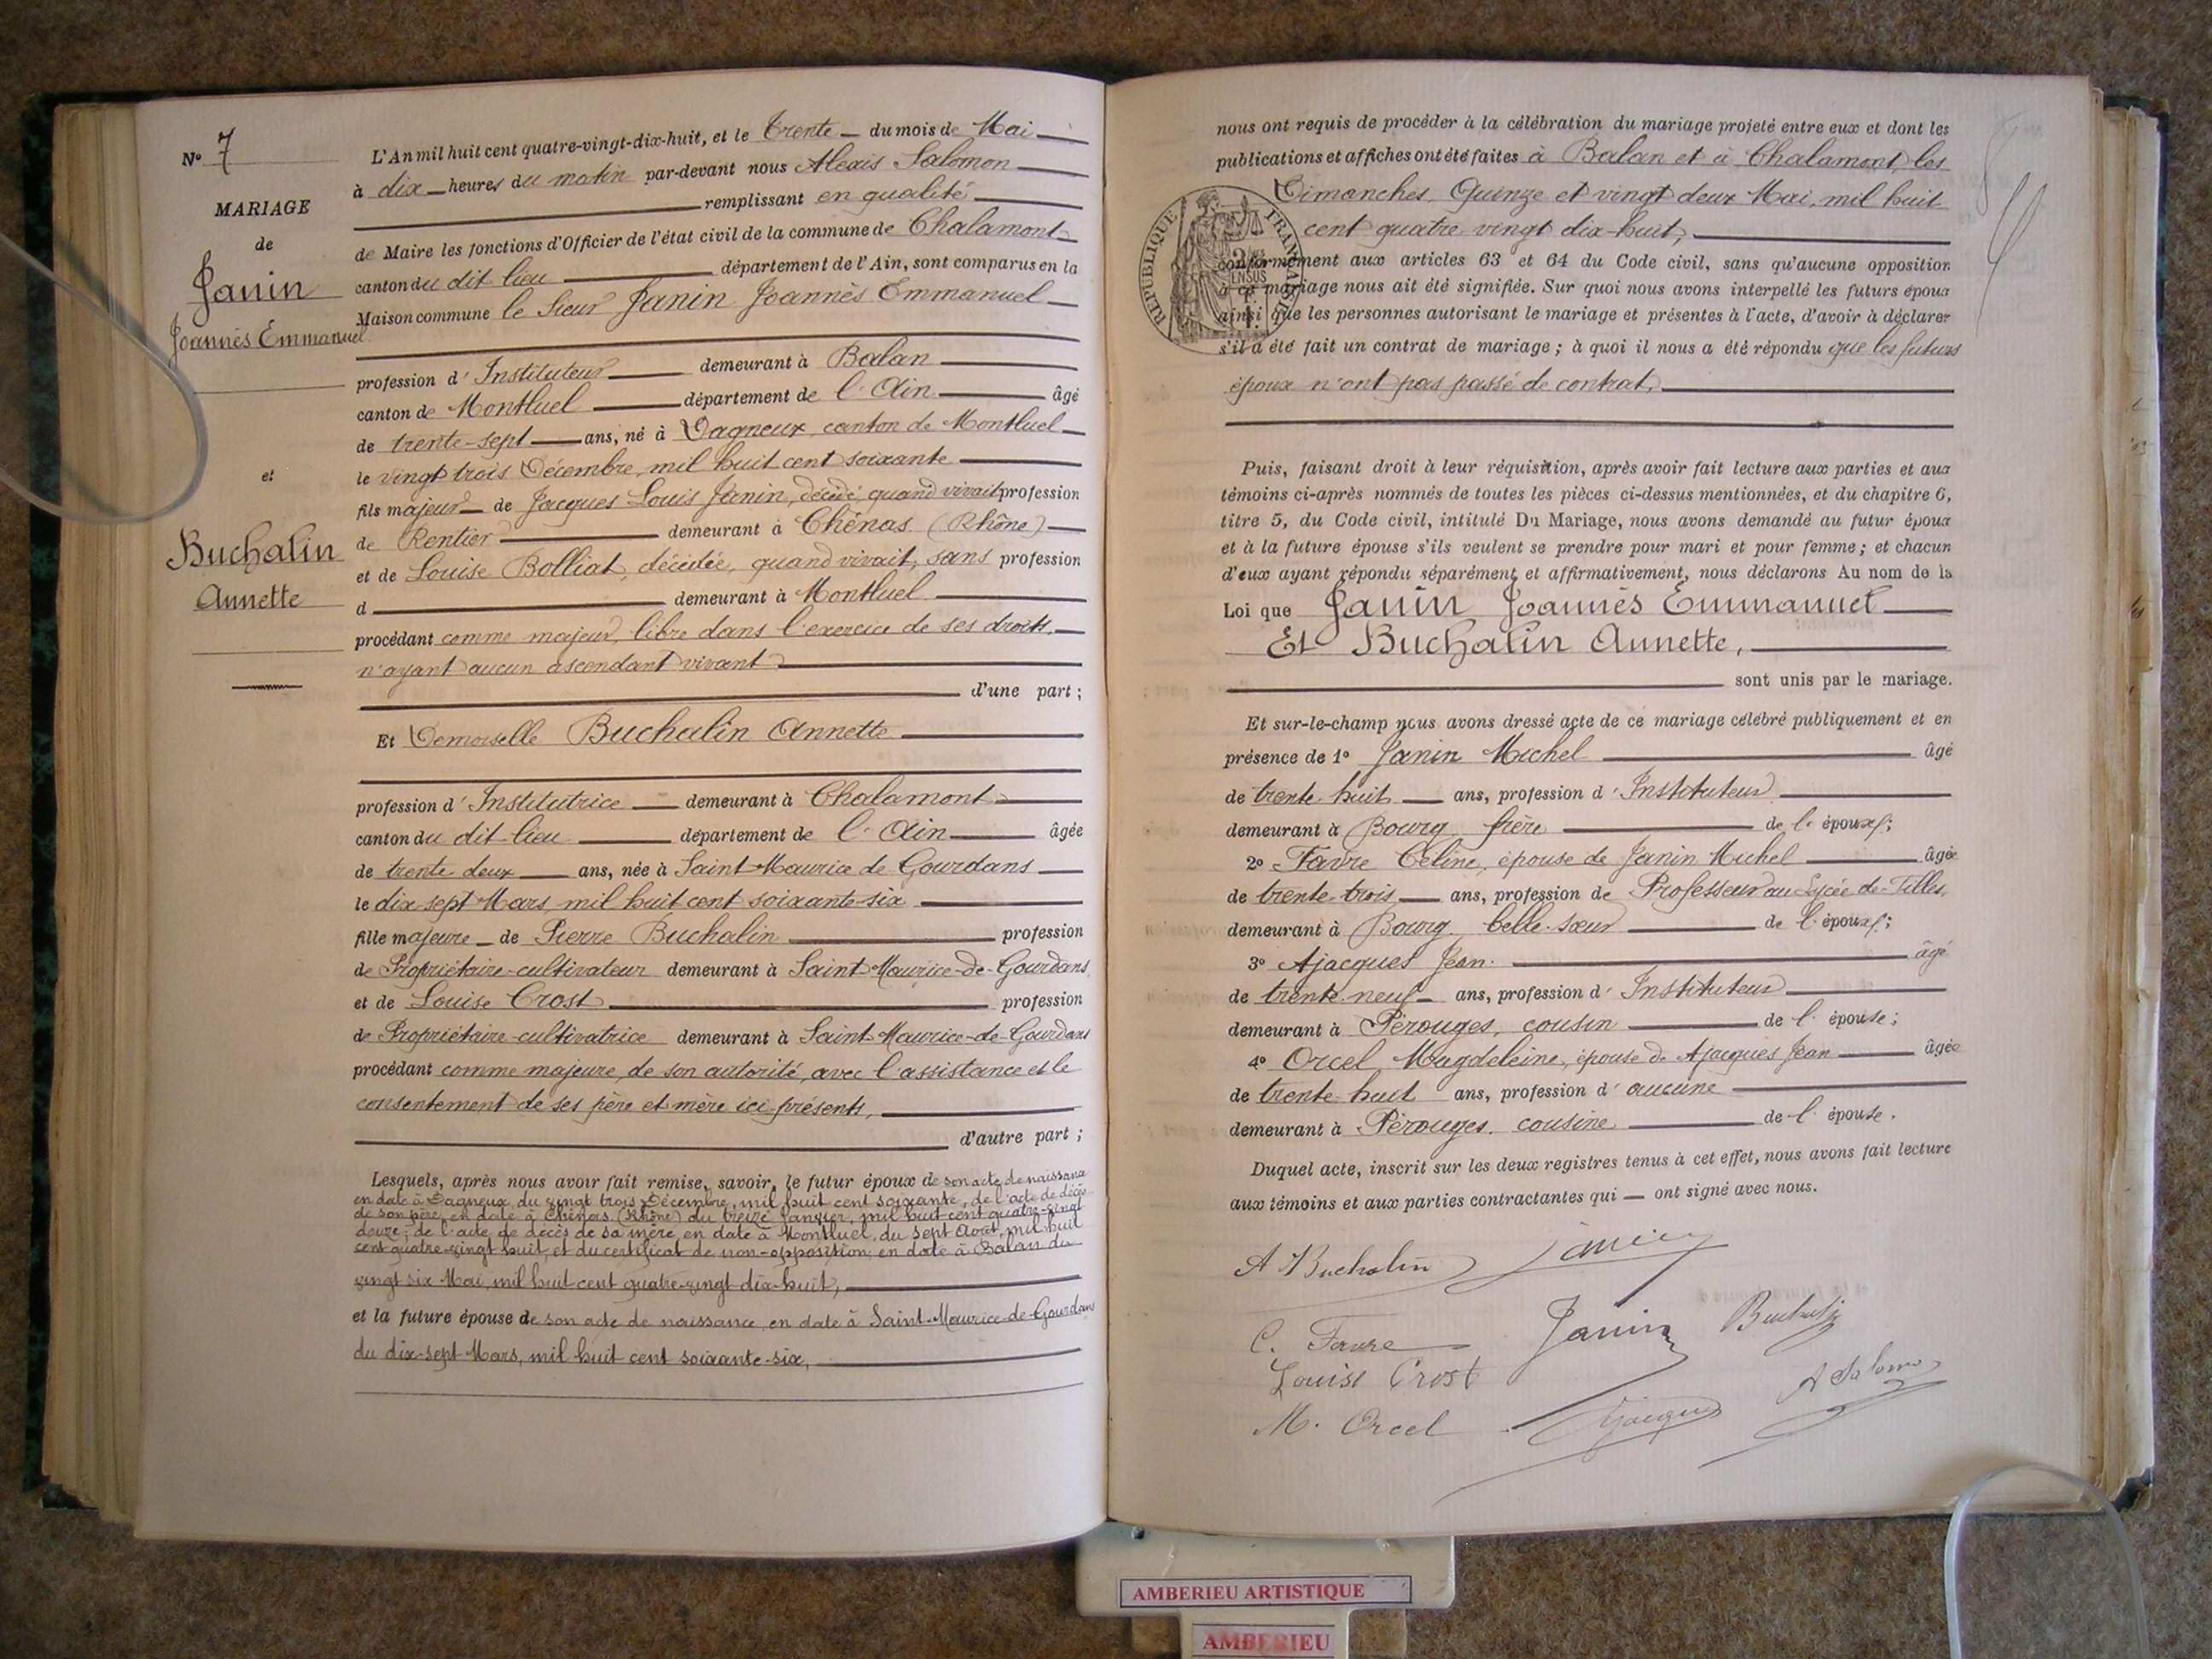 N° 7
MARIAGE
de
Janin
Joannès Emmanuel
et
Buchalin
Annette
L'An mil huit cent quatre-vingt-dix-huit, et le trente du mois de Mai
à dix heures du matin par-devant nous Alexis Salomon
remplissant en qualité
de Maire les fonctions d'Officier de l'état civil de la commune de Chalamont
canton du dit lieu département de l'Ain, sont comparus en la
Maison commune le Sieur Janin Joannès Emmanuel
profession d'Instituteur demeurant à Balan
canton de Montluel département de l'Ain âgé
de trente-sept ans, né à Dagneux, canton de Montluel
le vingt trois Décembre, mil huit cent soixante
fils majeur de Jacques Louis Janin, décédé, quand vivait profession
de Rentier demeurant à Chénas (Rhône)
et de Louise Bolliat, décédée, quand vivait, sans profession
d demeurant à Montluel
procédant comme majeur, libre dans l'exercice de ses droits,
n'ayant aucun ascendant vivant
d'une part ;
Et Demoiselle Buchalin Annette
profession d'Institutrice demeurant à Chalamont
canton du dit lieu département de l'Ain âgée
de trente deux ans, née à Saint Maurice de Gourdans
le dix sept Mars, mil huit cent soixante-six
fille majeure de Pierre Buchalin profession
de Propriétaire-cultivateur demeurant à Saint-Maurice-de-Gourdans
et de Louise Crost profession
de Propriétaire-cultivatrice demeurant à Saint-Maurice-de-Gourdans
procédant comme majeure, de son autorité, avec l'assistance et le
consentement de ses père et mère ici présents,
d'autre part ;
Lesquels, après nous avoir fait remise, savoir, le futur époux de son acte de naissance
en date à Dagneux, du vingt trois Décembre, mil huit cent soixante, de l'acte de décès
de son père, en date à Chénas (Rhône) du treize Janvier, mil huit cent quatre-vingt
douze, de l'acte de décès de sa mère, en date à Montluel, du sept Août, mil huit
cent quatre-vingt huit, et du certificat de non-opposition, en date à Balan du
vingt six Mai, mil huit cent quatre-vingt dix-huit,
et la future épouse de son acte de naissance, en date à Saint-Maurice-de-Gourdans
du dix-sept Mars, mil huit cent soixante-six,
nous ont requis de procéder à la célébration du mariage projeté entre eux et dont les
publications et affiches ont été faites à Balan et à Chalamont, les
Dimanches, Quinze et vingt deux Mai, mil huit
cent quatre-vingt dix-huit,
RÉPUBLIQUE FRANÇAISE
conformément aux articles 63 et 64 du Code civil, sans qu'aucune opposition
à ce mariage nous ait été signifiée. Sur quoi nous avons interpellé les futurs époux
ainsi que les personnes autorisant le mariage et présentes à l'acte, d'avoir à déclarer
s'il a été fait un contrat de mariage ; à quoi il nous a été répondu que les futurs
époux n'ont pas passé de contrat,
Puis, faisant droit à leur réquisition, après avoir fait lecture aux parties et aux
témoins ci-après nommés de toutes les pièces ci-dessus mentionnées, et du chapitre 6,
titre 5, du Code civil, intitulé Du Mariage, nous avons demandé au futur époux
et à la future épouse s'ils veulent se prendre pour mari et pour femme ; et chacun
d'eux ayant répondu séparément et affirmativement, nous déclarons Au nom de la
Loi que Janin Joannès Emmanuel
Et Buchalin Annette,
sont unis par le mariage.
Et sur-le-champ nous avons dressé acte de ce mariage célébré publiquement et en
présence de 1° Janin Michel âgé
de trente-huit ans, profession d'Instituteur
demeurant à Bourg, frère de l'époux ;
2° Favre Céline, épouse de Janin Michel âgée
de trente-trois ans, profession de Professeur au Lycée de Filles,
demeurant à Bourg, belle-sœur de l'époux ;
3° Ajacques Jean. âgé
de trente-neuf ans, profession d'Instituteur
demeurant à Pérouges, cousin de l'épouse ;
4° Orcel Magdeleine, épouse de Ajacques Jean âgée
de trente-huit ans, profession d'aucune
demeurant à Pérouges, cousine de l'épouse.
Duquel acte, inscrit sur les deux registres tenus à cet effet, nous avons fait lecture
aux témoins et aux parties contractantes qui ont signé avec nous.
A Buchalin Janin
C. Favre Janin Buchalin
Louise Crost A Salomon
M. Orcel Ajacques
AMBERIEU ARTISTIQUE
AMBERIEU